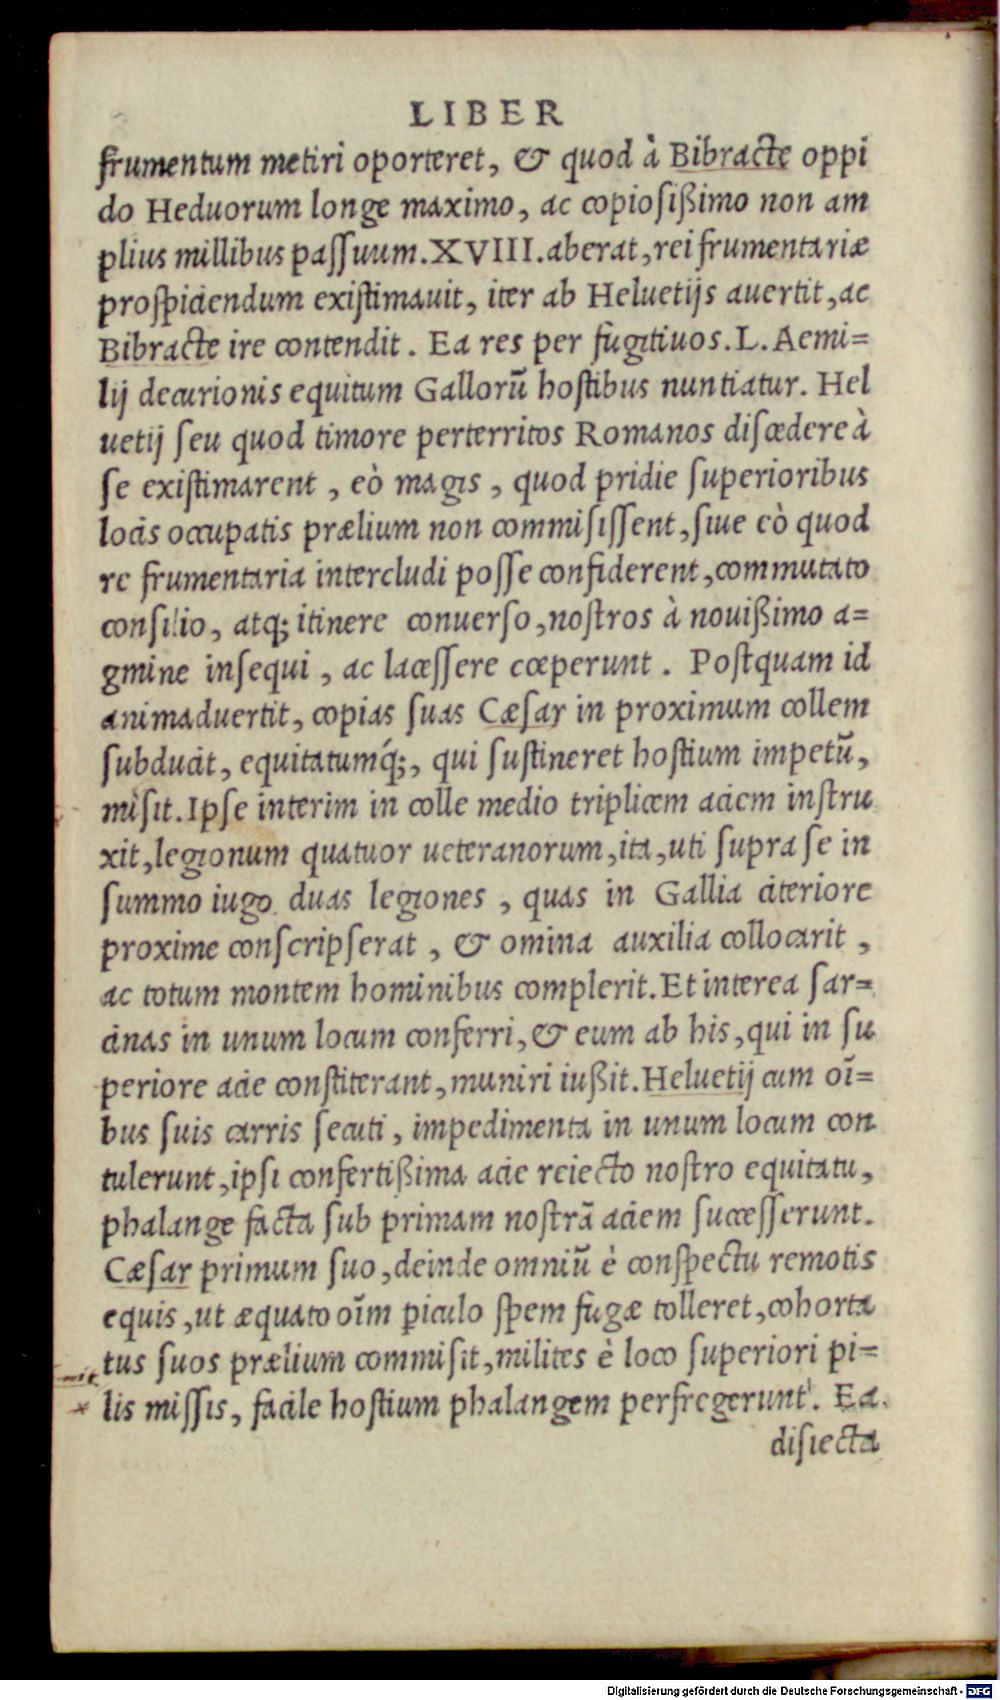 LIBER
frumentum metiri oporteret, & quod à Bibracte oppi
do Heduorum longe maximo, ac copiosißimo non am
plius millibus paſſuum.XVIII.aberat,rei frumentariæ
proſpiciendum exiſtimauit, iter ab Heluetijs auertit,ac
Bibracte ire contendit. Ea res per fugitiuos.L.Aemi=
lij decurionis equitum Gallorū hoſtibus nuntiatur. Hel
uetij ſeu quod timore perterritos Romanos diſcedere à
ſe exiſtimarent, eò magis, quod pridie ſuperioribus
locis occupatis prælium non commiſiſſent,ſiue eò quod
re frumentaria intercludi poſſe confiderent,commutato
conſilio, atq; itinere conuerſo,noſtros à nouißimo a=
gmine inſequi, ac laceſſere cœperunt. Poſtquam id
animaduertit, copias ſuas Cæſar in proximum collem
ſubducit, equitatumq́;, qui ſuſtineret hoſtium impetū,
miſit.Ipſe interim in colle medio triplicem aciem inſtru
xit,legionum quatuor ueteranorum,ita,uti ſupra ſe in
ſummo iugo duas legiones, quas in Gallia citeriore
proxime conſcripſerat, & omina auxilia collocarit,
ac totum montem hominibus complerit.Et interea ſar=
cinas in unum locum conferri,& eum ab his,qui in ſu
periore acie conſtiterant,muniri iußit.Heluetij cum oı̄=
bus ſuis carris ſecuti, impedimenta in unum locum con
tulerunt,ipſi confertißima acie reiecto noſtro equitatu,
phalange facta ſub primam noſtrā aciem ſucceſſerunt.
Cæſar primum ſuo,deinde omniū è conſpectu remotis
equis,ut æquato oı̄m ꝑiculo ſpem fugæ tolleret,cohorta
tus ſuos prælium commiſit,milites è loco ſuperiori pi=
lis miſſis, facile hoſtium phalangem perfregerunt. Ea
diſiecta
Digitalisierung gefördert durch die Deutsche Forschungsgemeinschaft - DFG